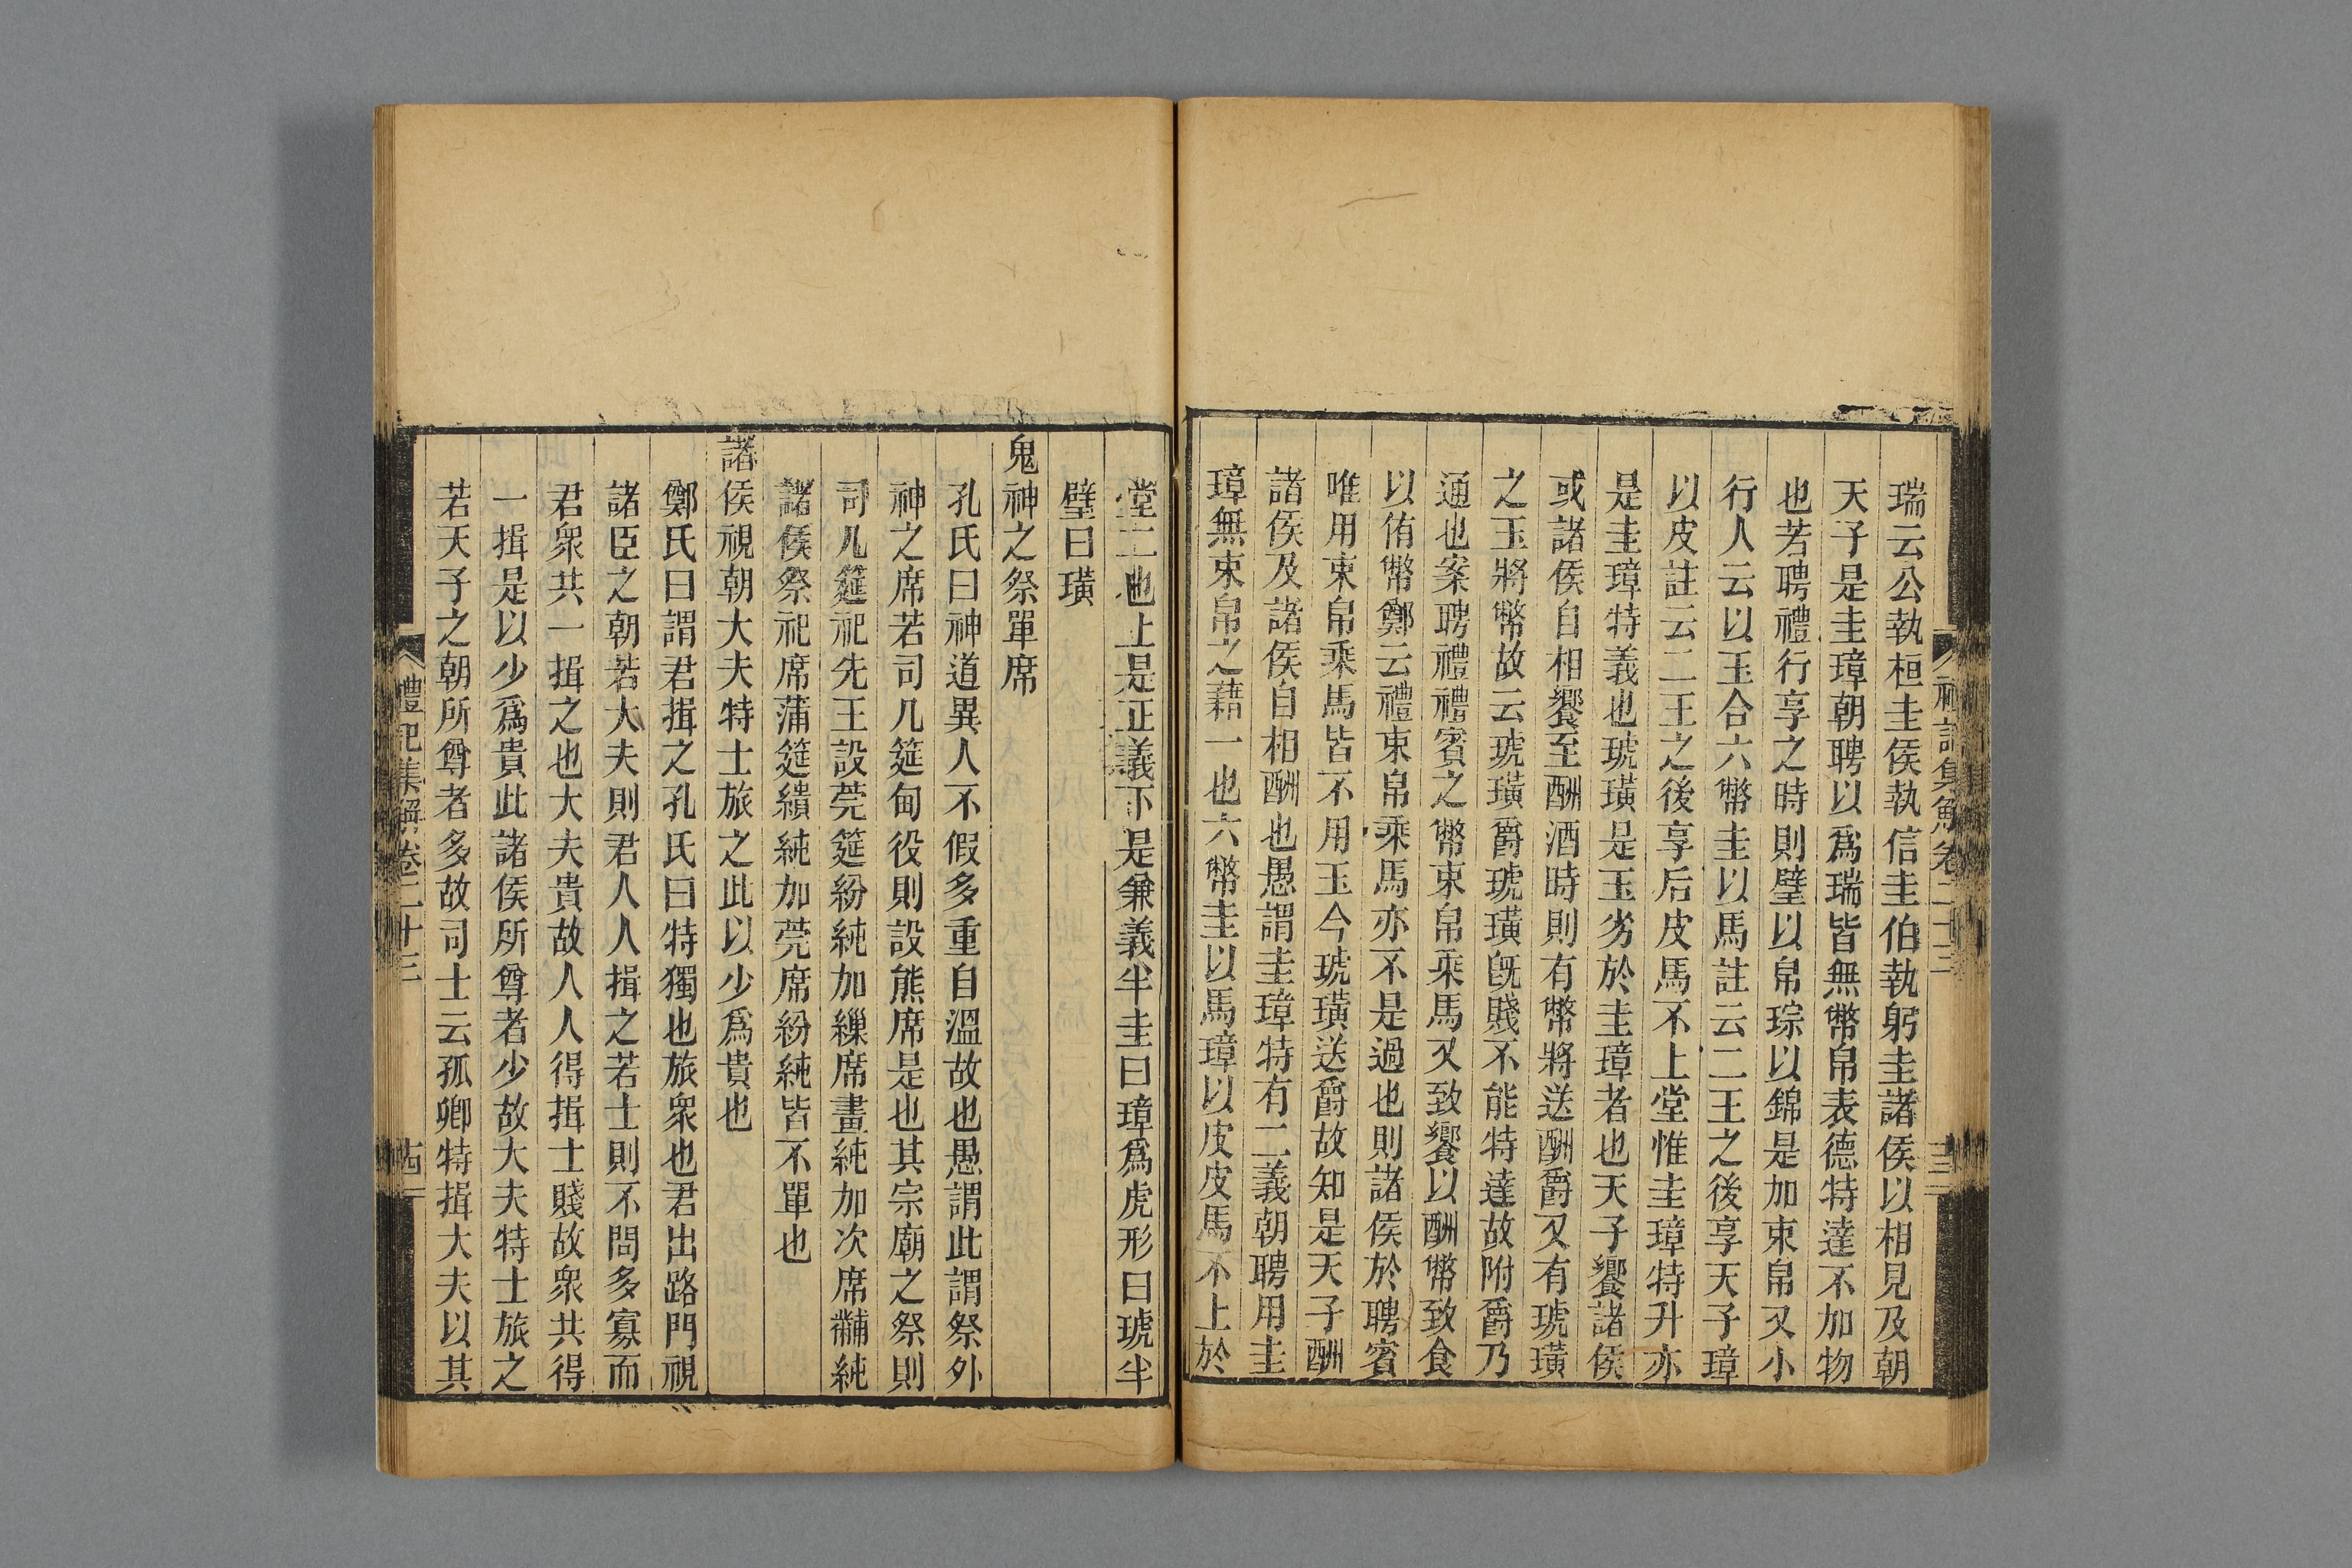 禮記集解卷二十三
十三
瑞云公執桓圭侯執信圭伯執躬圭諸侯以相見及朝
天子是圭璋朝聘以爲瑞皆無幣帛表德特達不加物
也若聘禮行享之時則璧以帛琮以錦是加束帛又小
行人云以玉合六幣圭以馬註云二王之後享天子璋
以皮註云二王之後享后皮馬不上堂惟圭璋特升亦
是圭璋特義也琥璜是玉劣於圭璋者也天子饗諸侯
或諸侯自相饗至酬酒時則有幣將送酬爵又有琥璜
之玉將幣故云琥璜爵琥璜旣賤不能特達故附爵乃
通也案聘禮禮賓之幣束帛乘馬又致饗以酬幣致食
以侑幣鄭云禮束帛乘馬亦不是過也則諸侯於聘賓
唯用束帛乘馬皆不用玉今琥璜送爵故知是天子酬
諸侯及諸侯自相酬也愚謂圭璋特有二義朝聘用圭
璋無束帛之藉一也六幣圭以馬璋以皮皮馬不上於
堂二也上是正義下是兼義半圭曰璋爲虎形曰琥半
璧曰璜
鬼神之祭單席
孔氏曰神道異人不假多重自溫故也愚謂此謂祭外
神之席若司几筵甸役則設熊席是也其宗廟之祭則
司几筵祀先王設莞筵紛純加繅席畫純加次席黼純
諸侯祭祀席蒲筵繢純加莞席紛純皆不單也
諸侯視朝大夫特士旅之此以少爲貴也
鄭氏曰謂君揖之孔氏曰特獨也旅衆也君出路門視
諸臣之朝若大夫則君人人揖之若士則不問多寡而
君衆共一揖之也大夫貴故人人得揖士賤故衆共得
一揖是以少爲貴此諸侯所尊者少故大夫特士旅之
若天子之朝所尊者多故司士云孤卿特揖大夫以其
禮記集解卷二十三
十四